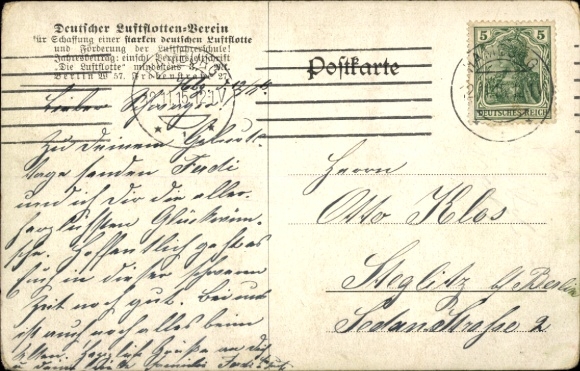 Deutscher Luftflotten-Verein
für Schaffung einer starken deutschen Luftflotte
und Förderung der Luftfahrerschule!
Jahresbeitrag: einschl. Vereinszeitschrift
„Die Luftflotte“ mindestens
Berlin W 57, Frobenstraße 27
Postkarte
5 5
DEUTSCHES REICH
Lieber Schwager
Zu Deinem Geburts-
tage senden Ferdi
und ich Dir die aller-
herzlichsten Glückwün-
sche. Hoffentlich geht es
Euch in dieser schweren
Zeit noch gut. Bei uns
ist auch noch alles beim
alten. Herzliche Grüße an Dich
u. Deine Ferdi
Herrn
Otto Klos
Steglitz b/Berlin
Sedan Strasse 2